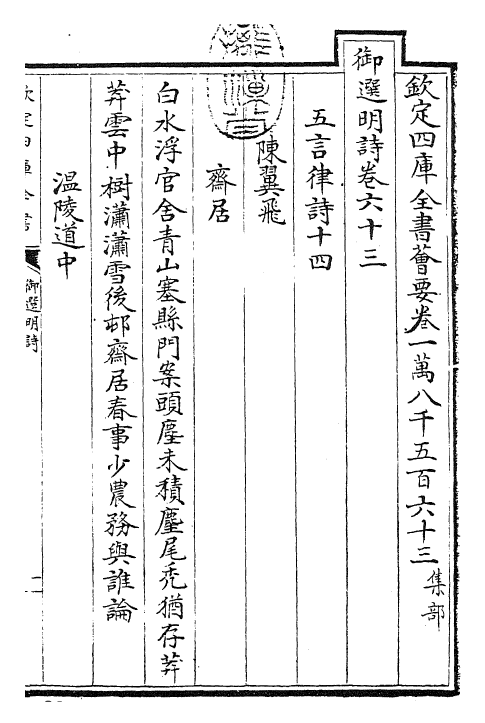 欽定四庫全書薈要卷一萬八千五百六十三集部
御選明詩卷六十三
五言律詩十四
陳翼飛
齋居
白水浮官舍青山塞縣門案頭塵未積麈尾禿猶存莽
莽雲中樹瀟瀟雪後邨齋居春事少農務與誰論
温陵道中
欽定四庫全書
御選明詩